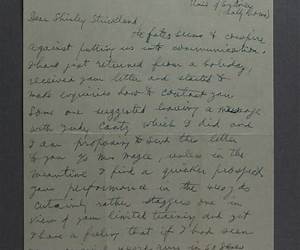 Univ of Sydney
Dear Shirley Strickland,
The fates seems to conspire
against putting us into communication.
I had just returned from a holiday,
received your letter and started to
make inquiries how to contact you
Some one suggested leaving a message
with which I did and
I am proposing to send this letter
to you Mrs Magee, unless in the
meantime I find a quicker prospect
your performance in the 100 yds
certainly rather staggers one in
view of your limited training and yet
I have a feeling that if I had seen